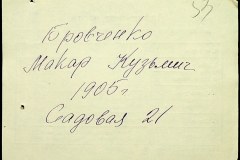 33
Бровченко
Макар Кузьмич
1905г
Садовая 21